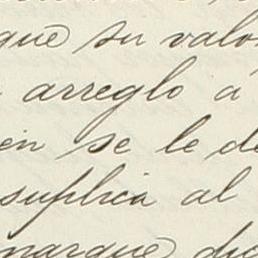 que su valo
arreglo á
en se le de
suplica al
marque dic